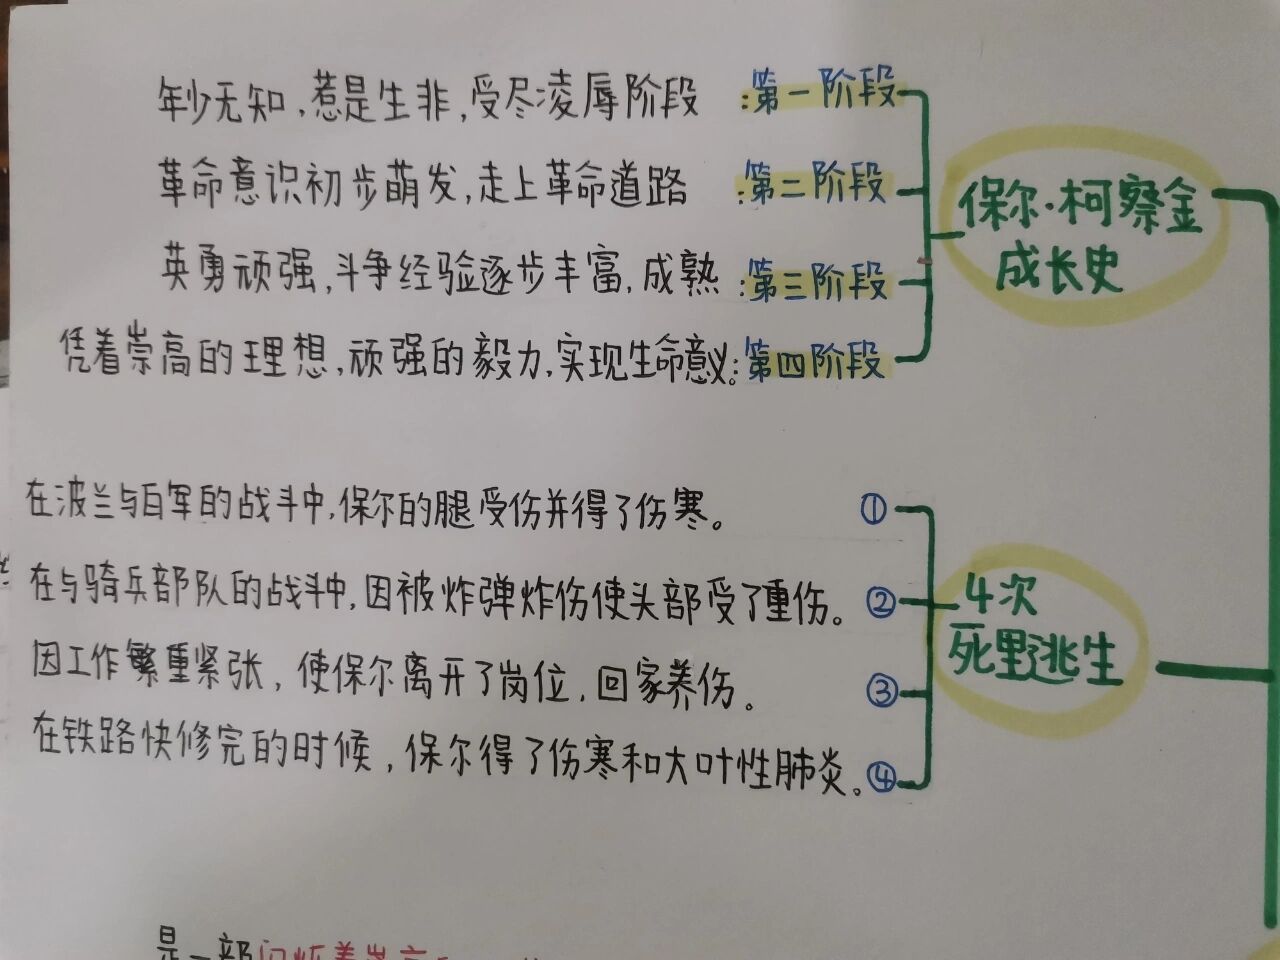 年少无知,惹是生非,受尽凌辱阶段 :第一阶段
革命意识初步萌发,走上革命道路 :第二阶段
英勇顽强,斗争经验逐步丰富,成熟 :第三阶段
凭着崇高的理想,顽强的毅力,实现生命意义:第四阶段
保尔·柯察金
成长史
在波兰与白军的战斗中,保尔的腿受伤并得了伤寒。 ①
在与骑兵部队的战斗中,因被炸弹炸伤使头部受了重伤。 ②
因工作繁重紧张,使保尔离开了岗位,回家养伤。 ③
在铁路快修完的时候,保尔得了伤寒和大叶性肺炎。 ④
4次
死里逃生
是一部